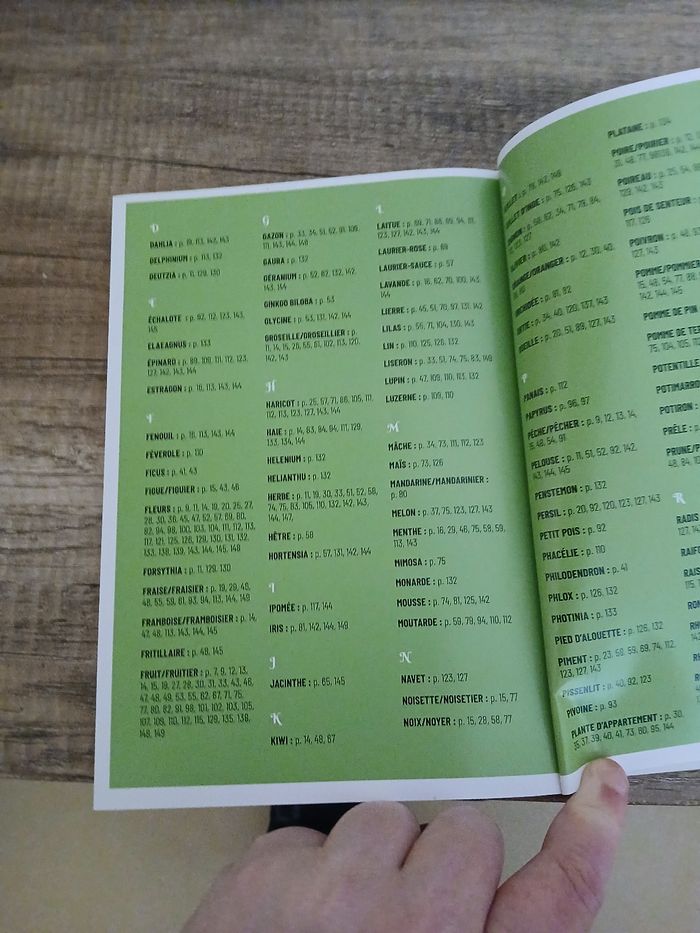 D
DAHLIA : p. 19, 113, 142, 143
DELPHINIUM : p. 113, 132
DEUTZIA : p. 11, 129, 130
E
ÉCHALOTE : p. 92, 112, 123, 143,
145
ELAEAGNUS : p. 133
ÉPINARD : p. 89, 109, 111, 112, 123,
127, 142, 143, 144
ESTRAGON : p. 16, 113, 143, 144
F
FENOUIL : p. 16, 113, 143, 144
FÉVEROLE : p. 110
FICUS : p. 41, 43
FIGUE/FIGUIER : p. 15, 43, 46
FLEURS : p. 9, 11, 14, 19, 20, 25, 27,
28, 30, 36, 45, 47, 52, 57, 69, 80,
82, 94, 98, 100, 103, 104, 111, 112, 113,
117, 121, 125, 126, 129, 130, 131, 132,
133, 138, 139, 143, 144, 145, 148
FORSYTHIA : p. 11, 129, 130
FRAISE/FRAISIER : p. 19, 29, 46,
48, 55, 59, 61, 93, 94, 113, 144, 149
FRAMBOISE/FRAMBOISIER : p. 14,
47, 48, 113, 143, 144, 145
FRITILLAIRE : p. 48, 145
FRUIT/FRUITIER : p. 7, 9, 12, 13,
14, 15, 19, 27, 28, 30, 31, 33, 43, 46,
47, 48, 49, 53, 55, 62, 67, 71, 75,
77, 80, 82, 91, 98, 101, 102, 103, 105,
107, 109, 110, 112, 115, 129, 135, 136,
148, 149
G
GAZON : p. 33, 34, 51, 62, 91, 109,
111, 143, 144, 148
GAURA : p. 132
GÉRANIUM : p. 52, 82, 132, 142,
143, 144
GINKGO BILOBA : p. 53
GLYCINE : p. 53, 131, 142, 144
GROSEILLE/GROSEILLIER : p.
11, 14, 15, 26, 55, 61, 102, 113, 120,
142, 143
H
HARICOT : p. 25, 57, 71, 86, 105, 111,
112, 113, 123, 127, 143, 144
HAIE : p. 14, 83, 84, 94, 111, 129,
133, 134, 144
HELENIUM : p. 132
HELIANTHU : p. 132
HERBE : p. 11, 19, 30, 33, 51, 52, 58,
74, 75, 83, 105, 110, 132, 142, 143,
144, 147,
HÊTRE : p. 58
HORTENSIA : p. 57, 131, 142, 144
I
IPOMÉE : p. 117, 144
IRIS : p. 81, 142, 144, 149
J
JACINTHE : p. 65, 145
K
KIWI : p. 14, 48, 67
L
LAITUE : p. 69, 71, 86, 89, 94, 111,
123, 127, 142, 143, 144
LAURIER-ROSE : p. 69
LAURIER-SAUCE : p. 57
LAVANDE : p. 16, 62, 70, 100, 143,
144
LIERRE : p. 45, 51, 70, 97, 131, 142
LILAS : p. 56, 71, 104, 130, 143
LIN : p. 110, 125, 126, 132
LISERON : p. 33, 51, 74, 75, 83, 149
LUPIN : p. 47, 109, 110, 113, 132
LUZERNE : p. 109, 110
M
MÂCHE : p. 34, 73, 111, 112, 123
MAÏS : p. 73, 126
MANDARINE/MANDARINIER :
p. 80
MELON : p. 37, 75, 123, 127, 143
MENTHE : p. 16, 29, 46, 75, 58, 59,
113, 143
MIMOSA : p. 75
MONARDE : p. 132
MOUSSE : p. 74, 81, 125, 142
MOUTARDE : p. 59, 79, 94, 110, 112
N
NAVET : p. 123, 127
NOISETTE/NOISETIER : p. 15, 77
NOIX/NOYER : p. 15, 28, 58, 77
p. 79, 142, 149
D'INDE : p. 75, 126, 143
p. 80, 142
/ORANGER : p. 12, 30, 40,
p. 81, 92
p. 34, 40, 120, 137, 143
p. 20, 51, 89, 127, 143
P
PANAIS : p. 112
PAPYRUS : p. 96, 97
PÊCHE/PÊCHER : p. 9, 12, 13, 14,
15, 48, 54, 91
PELOUSE : p. 11, 51, 52, 92, 142,
143, 144, 145
PENSTEMON : p. 132
PERSIL : p. 20, 92, 120, 123, 127, 143
PETIT POIS : p. 92
PHACÉLIE : p. 110
PHILODENDRON : p. 41
PHLOX : p. 126, 132
PHOTINIA : p. 133
PIED D'ALOUETTE : p. 126, 132
PIMENT : p. 23, 58, 59, 69, 74, 112,
123, 127, 143
PISSENLIT : p. 40, 92, 123
PIVOINE : p. 93
PLANTE D'APPARTEMENT : p. 30,
35, 37, 39, 40, 41, 73, 80, 95, 144
PLATANE : p. 134
POIRE/POIRIER : p. 12,
POIREAU : p. 25, 54,
129, 142, 143
POIS DE SENTEUR :
117, 126
POIVRON : p. 48,
127, 143
POMME/POMMIER
15, 48, 54, 77, 88,
142, 144, 145
POMME DE PIN
POMME DE TER
75, 104, 105,
POTENTILLE
POTIMARRO
POTIRON :
PRÊLE : p.
PRUNE/P
48, 84,
R
RADIS
127,
RAIFO
RAIS